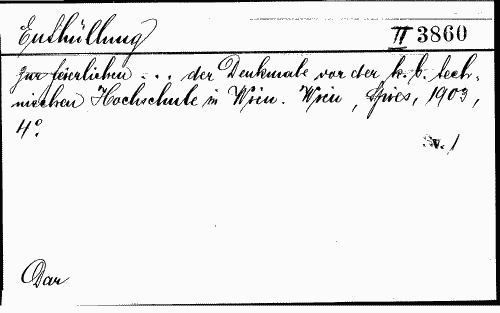 Enthüllung II 3860
Zur feierlichen ... der Denkmale vor der k. k. tech-
nischen Hochschule in Wien. Wien, Spies, 1903,
4°.
Sv. 1
Dar